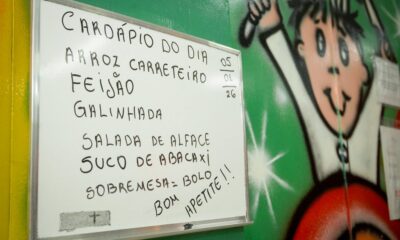 CARDÁPIO DO DIA
05
01
26
ARROZ CARRETEIRO
FEIJÃO
GALINHADA
SALADA DE ALFACE
SUCO DE ABACAXI
SOBREMESA = BOLO
BOM APETITE!!